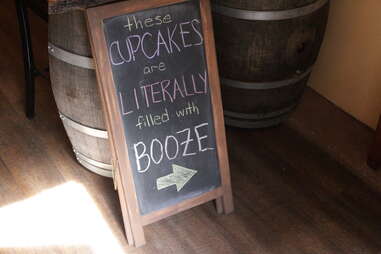 these
CUPCAKES
are
LITERALLY
filled with
BOOZE